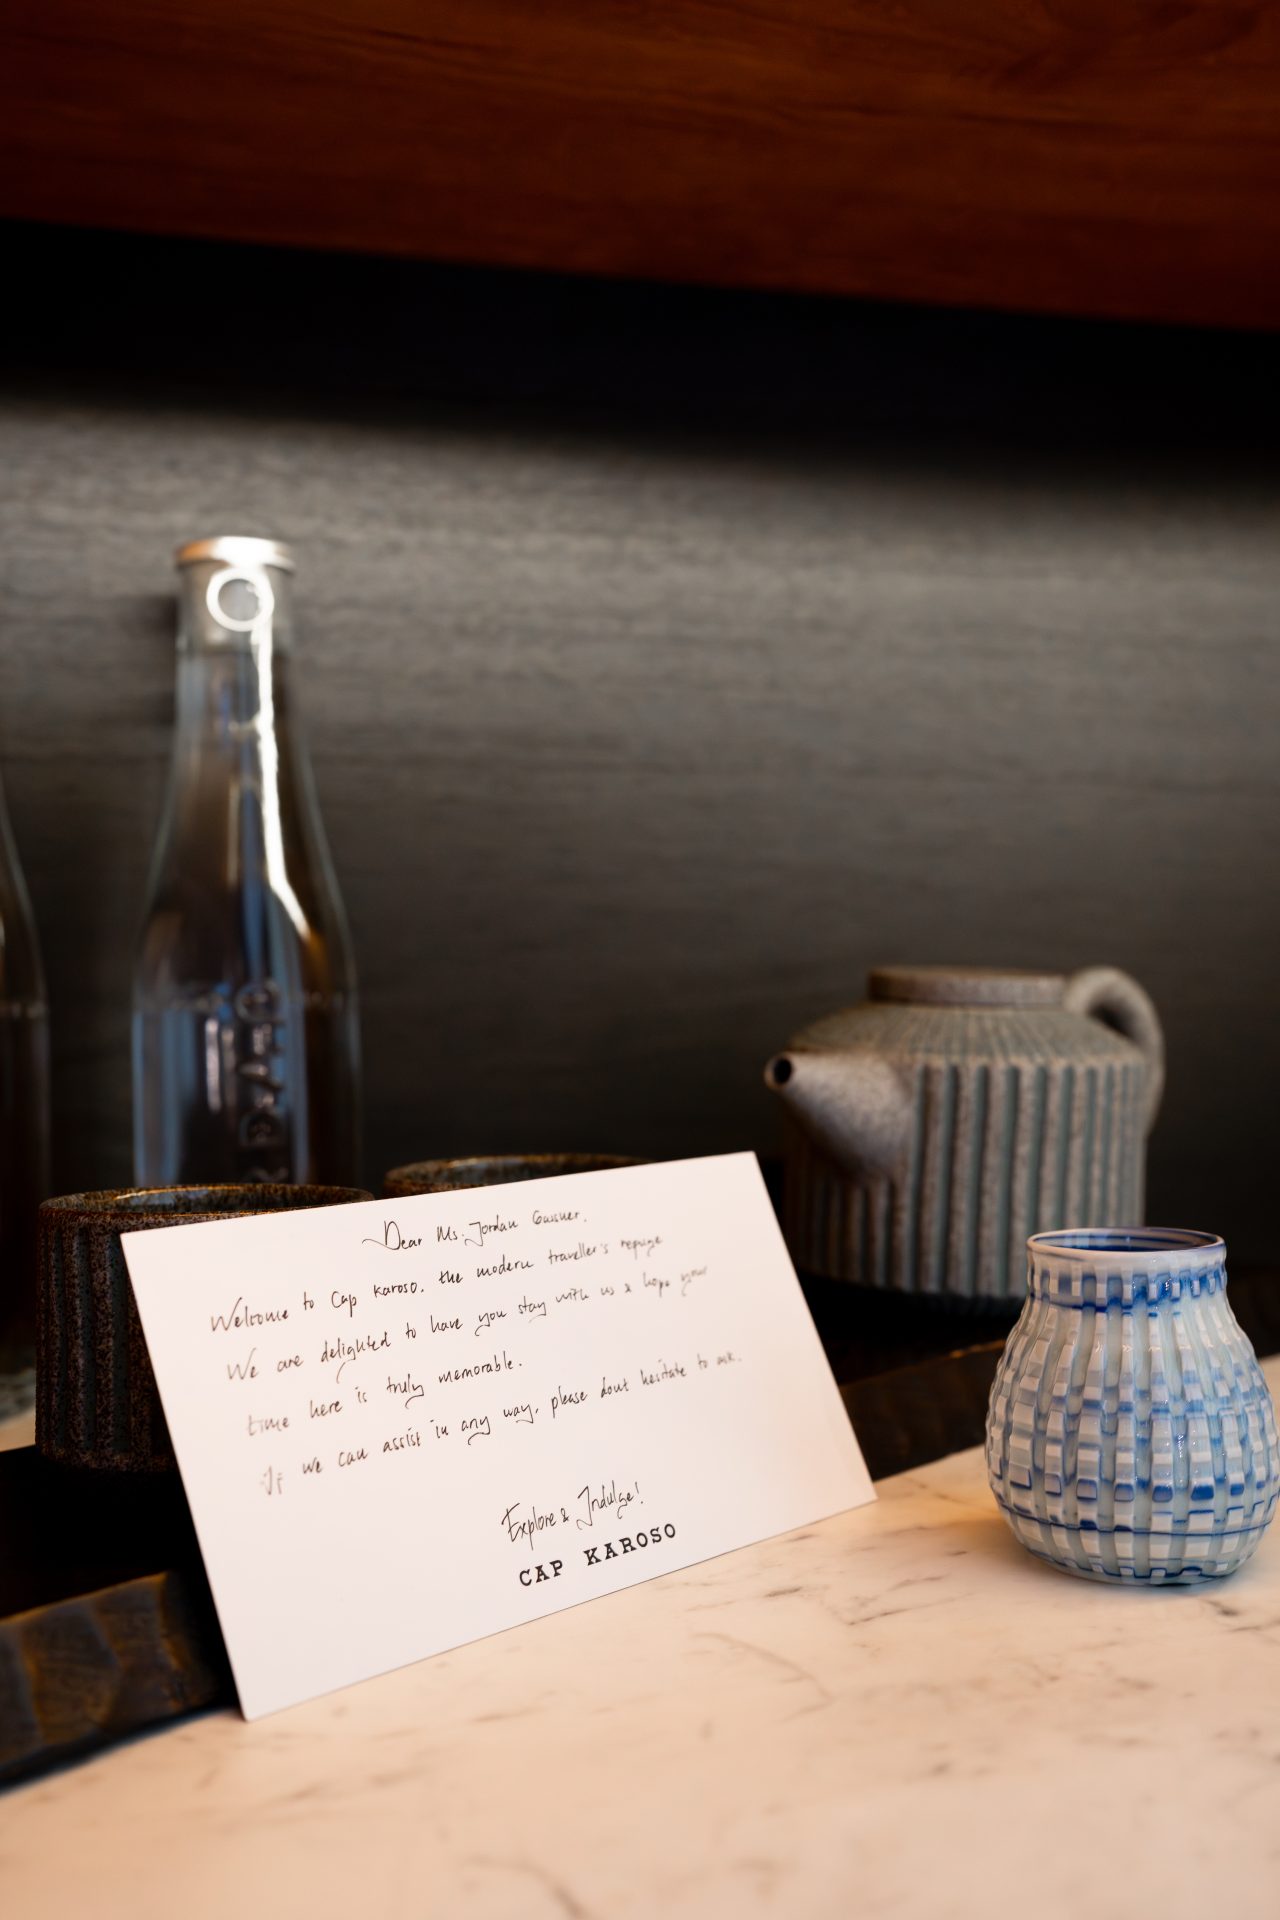 Dear Ms. Jordan Gassner,
Welcome to Cap Karoso, the modern traveller's refuge
We are delighted to have you stay with us & hope your
time here is truly memorable.
If we can assist in any way, please dont hesitate to ask.
Explore & Indulge!
CAP KAROSO